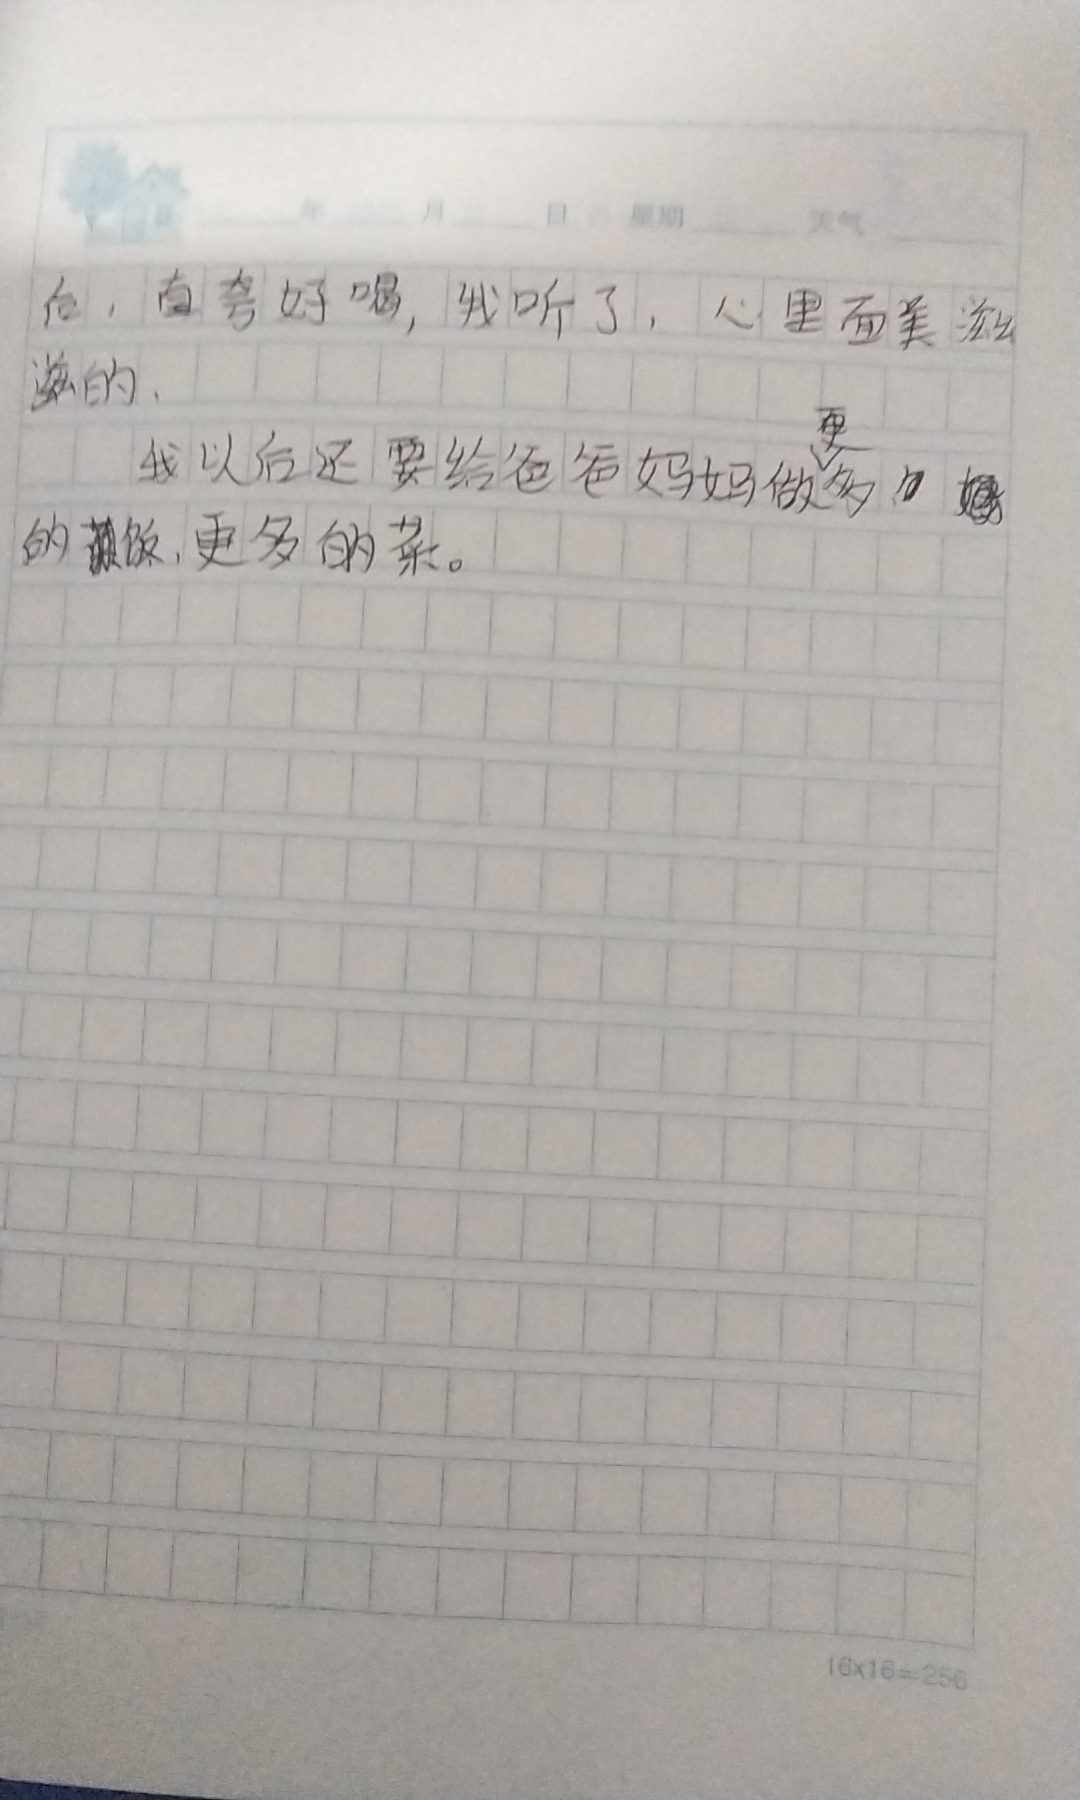 年 月 日 星期 天气
后，直夸好喝，我听了，心里面美滋
滋的，
更
我以后还要给爸爸妈妈做多
的饭，更多的菜。
16x16=256